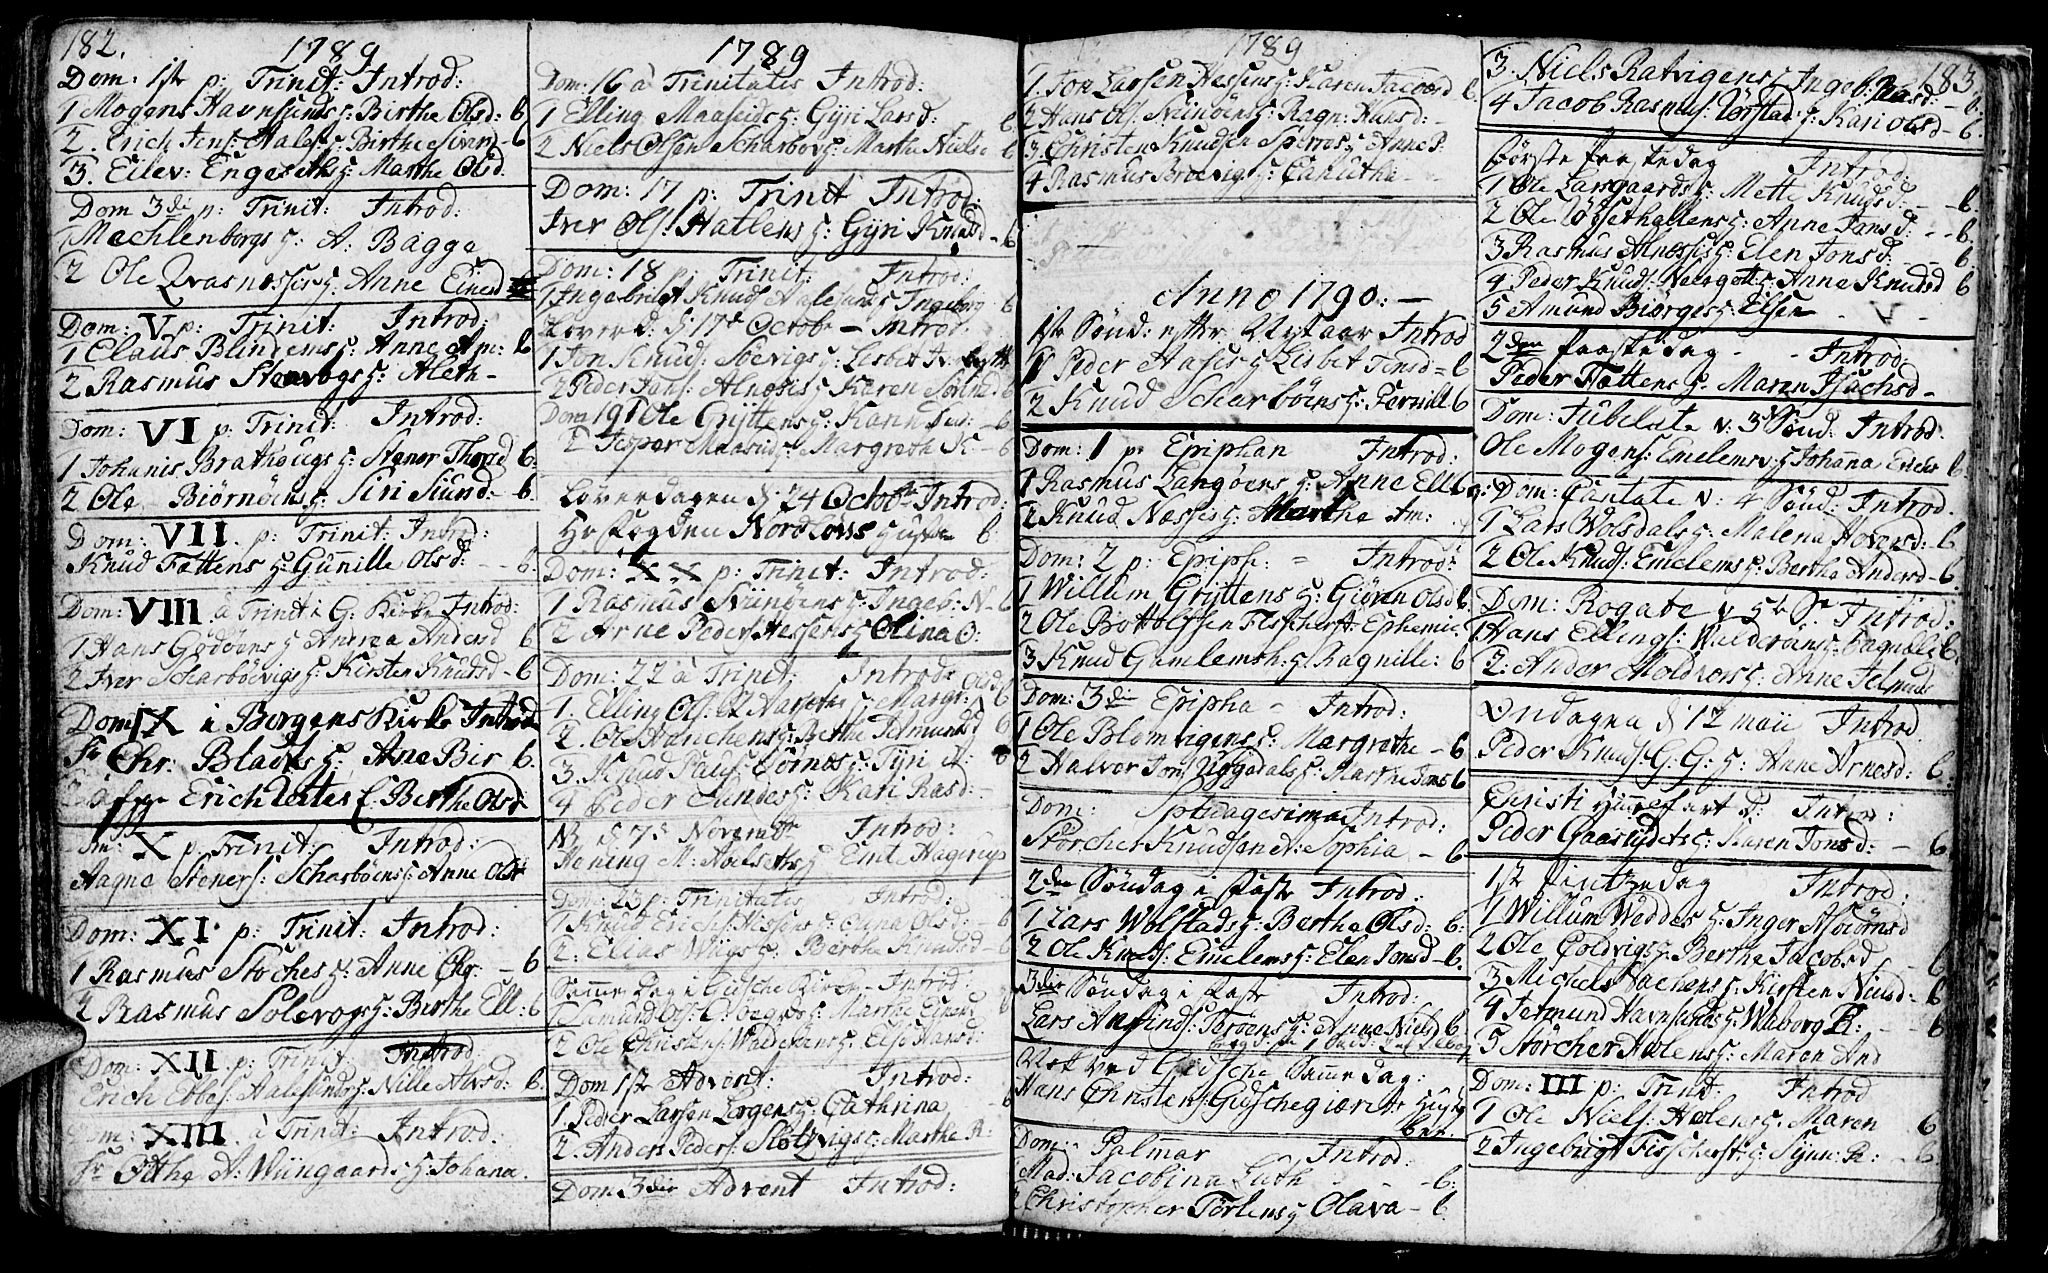 182.
1789
Dom: 1ste p: Trinit: Introd:
1 Mogens Havnsunds q: Birthe Olsd: 6
2. Erich Jens: Aales: q: Birthe Sivers - 6
3. Eilev: Engeseths q: Marthe Olsd.
Dom 3die p: Trinit: Introd:
1 Mechlenborgs q: A: Bagge
2 Ole Qvasnessis q: Anne Einersd
Dom: V p: Trinit: Introd:
1 Claus Blindems q: Anne Am: 6
2 Rasmus Stenvogs q: Aleth -
Dom: VI p: Trinit: Introd:
1 Johanis Brathougs q: Stenor Thored 6.
2 Ole Biörnöens q: Siri Siund: - 6.
Dom: VII. p: Trinit: Introd:
Knud Fattens q: Gunille Olsd: - 6.
Dom: VIII à Trinit i G: Kirke Introd:
1 Hans Godöens q Andrea Andersd 6
2 Iver Scharbövigs q: Kirsten Knudsd - 6
Dom IX i Borgens Kirke Introd
Fr Chr. Blachs q: Ane Bir 6.
Erich q: Berthe Olsd
Dm: X p. Trinit: Introd:
Aagne Steners: Scharböens q: Anne Olsd
Dom: XI. p: Trinit: Introd:
1 Rasmus Stoches q: Anne Chr. - 6
2 Rasmus Solevogs q: Berthe Ell: 6
Dom: XII p: Trinit: Introd:
Erich Ebbes: Aalesunds q: Nille Alvsd: - 6.
Dom: XIII à Trinit: Introd:
Fr Otthe A: Wiingaards q: Johana.
1789
Dom: 16 à Trinitatis Introd:
1 Elling Maaseids q: Gyri Larsd: 6
2 Niels Olsen Scharbövs q: Marthe Niels: 6
Dom: 17 p: Trinit Introd:
Iver Ols: Hattens q: Gyri Knudsd - 6
Dom: 18 p: Trinit: Introd:
1 Ingebrigt Knuds Aalesunds q Ingeborg - 6
Löverd: d 17de Octobr - Introd.
1 Jon Knuds: Soevigs q: Lisbet
2 Peder Jans: Alnesis q: Karen 6
Dom 19 1 Ole Grÿttens q: Karin - 6
2 Jesper Maaseids q: Margrethe K - 6
Löverdagen d. 24 Octobr Introd:
Hr Fogden Nordlows hustru 6.
Dom: XX p: Trinit: Introd:
1 Rasmus Niinöens q: Ingeb: N - 6
2 Arne Peders: Hessens q Olina O:
Dom: 22 à Trinit: Introd:
1. Elling Ols: q: Margr: Olsd 6
2. Ole Hanchens q: Birthe Jetmunds 6
3. Knud Pals: Törnes q: Tÿri A:
4 Peder Sundes q: Kari Rasd: -
NB d 7de Novembr Introd:
Hening M: q: Emte Hagerup
Dom: 23 p: Trinitatis Introd:
1 Knud Erichs: Hessens q: Olsd: - 6
2. Elias Wiigs q: Birthe Knudsd - 6
Same Dag i Gidsche Kirke - Introd:
1 Semund Ols: q: Marthe Einers
2 Ole Christens Walderöens q: Else Hansd:
Dom 1ste Advent: Introd:
1 Peder Larsen Longens q: Cathrina 6
2. Anders Peders: Slotzvigs q: Marthe R:
Dom 3die Advent Introd:
1789
1. Jon Larsen Hessens q: Karen Jacobsd 6
2 Hans Ols: Niinöens q: Ragn: Hansd: -
3. Christen Knudsen Sperres q: Anne P.
4 Rasmus Breevigs q: Canuthe -
Anno 1790: -
1ste Sönd: efter Nytaar Introd
1 Peder Aases q: Lisbet Jensd = 6
2 Knud Scharböens q: Pernille 6
Dom: 1 p: Epiphan Introd:
1 Rasmus Langöens q: Anne Ell: 6
2 Knud Næssis q: Marthe Am:
Dom: 2 p: Epiph: = Introd:
1 Willum Grÿttens q: Gÿven Olsd 6.
2 Ole Bottolfsen Fischerst: Ephemia
3 Knud Gamlemsh: q: Ragnille: 6
Dom: 3die Epipha - Introd:
1 Ole Blomvigens q: Margrethe - 6
2 Halvor Jons: Uggedals q: Marthe Jons 6
Dom: Septuagesima Introd:
Störcher Knudsen N: Sophia - 6
2den Söndag i Faste Introd:
1 Lars Wolfstads q: Berthe Olsd: 6:
2 Ole Knuds: Emelems q: Elen Jonsd - 6.
3die Söndag i Faste Introd:
Lars Anfinds: Toröens q: Anne Nielsd 6.
Nok ved Gidsche Same dag:
Hans Christens: Gidschegiærit: Hustr
Ber.
Dom: Palmar Introd:
Mad: Jacobina Luth - - - 6:
2 Christopher Törlens q Olava - 6
183.
3. Niels Ratvigens q Ingeb: Rasd: - 6
4 Jacob Rasmus: Törstad q: Kari Olsd - 6.
Förste Paaskedag Introd:
1 Ole Larsgaards q: Mette Knudsd: - - 6.
2 Ole Løgsethattens q: Anne Jansd: - - 6.
3 Rasmus Alnessis q: Elen Jonsd: - 6.
4 Peder Knuds: q: Anne Knudsd 6
5 Amund Biörges q: Elsen - -
2den Paaskedag - - Introd:
Peder Fattens q: Maren Isachsd -
Dom: Jubilate v: 3die Sønd: Introd:
Ole Mogens: Emelems q: Johanna Erichs 6.
Dom: Cantate v: 4 Sönd: Introd.
1 Lars Wolsdals q: Malena Hoversd: 6
2 Ole Knuds: Emelems q: Berthe Andersd - 6.
Dom: Rogate v 5te S: Introd:
1 Hans Ellings: Walderöns q: Ragnille 6.
2. Ander Moldvors q: Anne Jetmuds
Onsdagen d. 12 maii Introd.
Peder Knuds: G: G: q: Anne Arnesd: 6.
Christi Himmelfart d: Introd:
Peder Gaaslÿdets q: Karen Jonsd: - 6.
1ste Pintzedag Introd:
1 Willum Weddes q: Inger Asbiörnsd
2 Ole Coldvigs q: Berthe Jacobsd - 6
3 Michels q: Kirsten Nielsd: - 6
4 Jetmund Havnsunds q: Waborg R: - 6
5 Störcher Aslens q: Maren And
Dom: III p: Trinit: Introd
1 Ole Niels: Holens q: Maren 6
2 Ingebrigt Fisscherst: q: Synn: R: - 6.